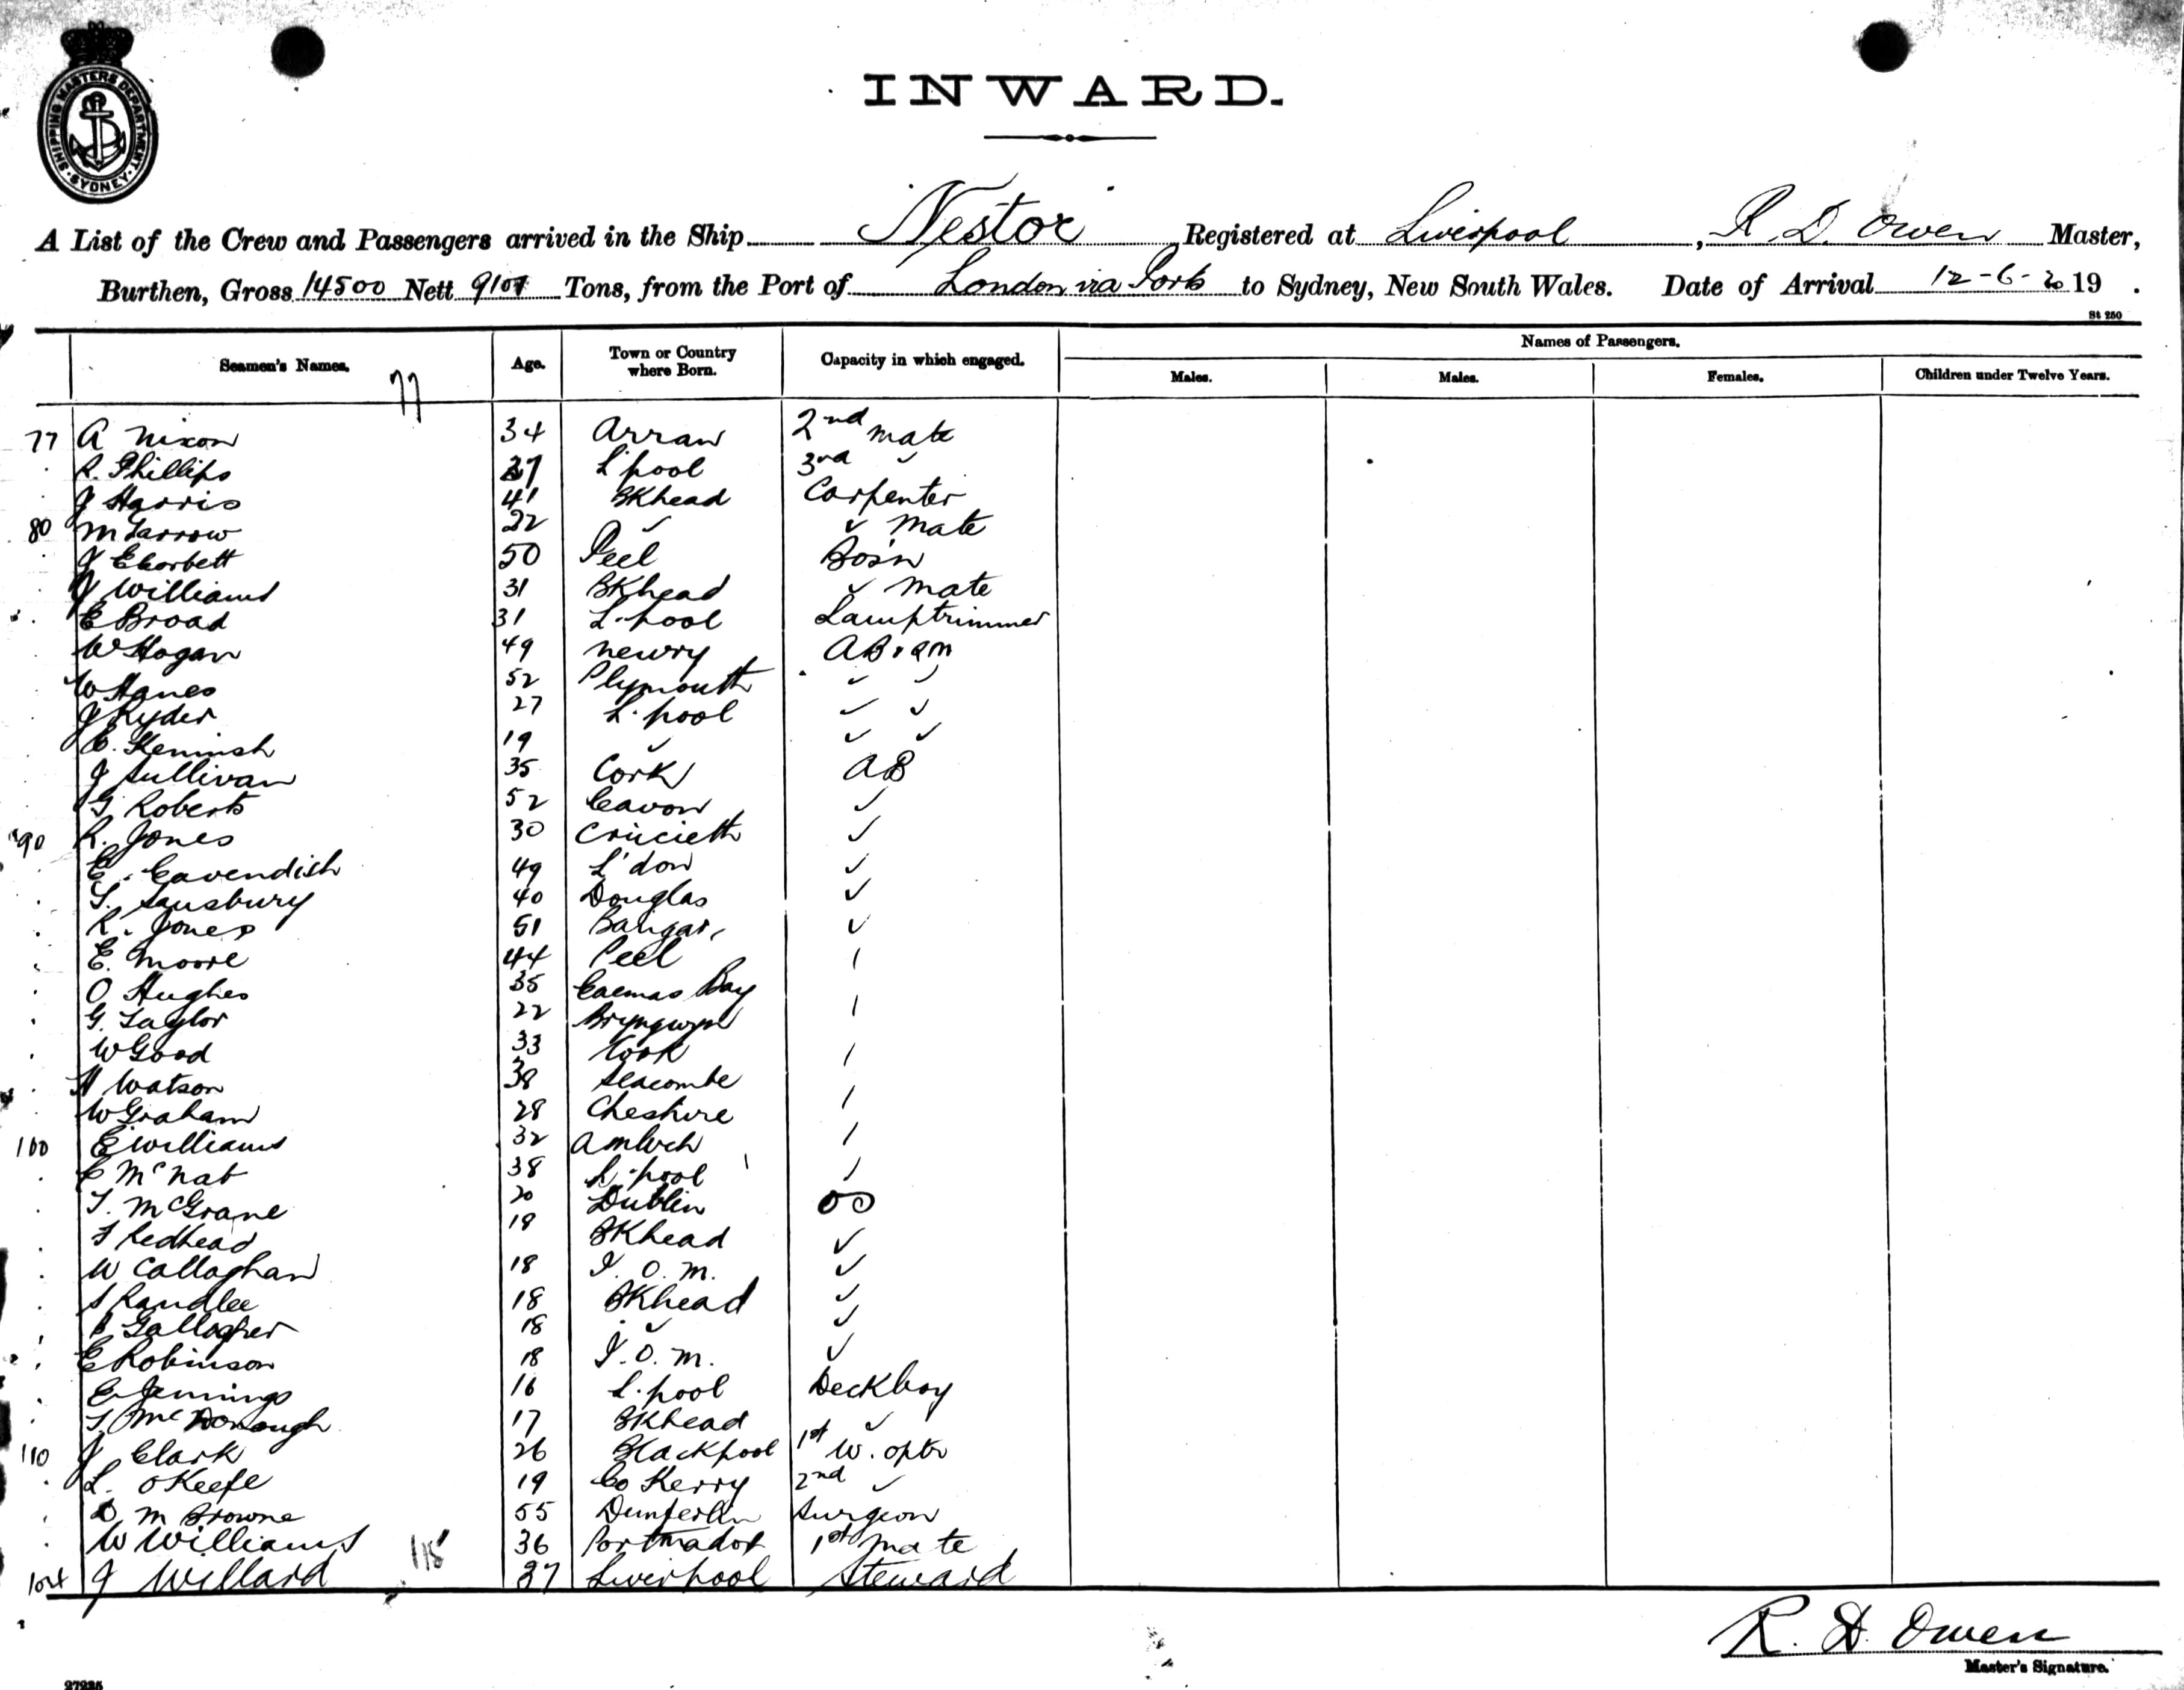 SHIPPING MASTERS DEPARTMENT. SYDNEY.
INWARD.
A List of the Crew and Passengers arrived in the Ship Nestor, Registered at Liverpool, R. D. Owen Master,
Burthen, Gross 14500 Nett Tons, from the Port of London via Ports to Sydney, New South Wales. Date of Arrival 12-6-20 19 .
St 250
Seamen's Names. Age. Town or Country where Born. Capacity in which engaged. Names of Passengers.
Males. Males. Females. Children under Twelve Years.
77
77 A Nixon 34 Arran 2nd mate
R. Phillips 37 L'pool 3rd ✓
J Harris 41 BKhead Carpenter
80 M 22 ✓ ✓ mate
J E Corbett 50 Peel Bosn
J Williams 31 BKhead ✓ mate
E Broad 31 L.pool Lamptrimmer
W Hogan 49 Newry AB
W Hanes 52 Plymouth ✓ ✓
J Ryder 27 L.pool ✓ ✓
19 ✓ ✓ ✓
J Sullivan 35 Cork AB
G Roberts 52 ✓
90 R. Jones 30 Criccieth ✓
E. Cavendish 49 L'don ✓
T. Sansbury 40 Douglas ✓
R. Jones 51 Bangor ✓
E. Moore 44 Peel /
O Hughes 35 Caemas Bay /
G. Taylor 22 Bryngwyn /
W Good 33 /
H Watson 38 Seacombe /
W Graham 28 Cheshire /
100 E Williams 32 Amlwch /
C McNab 38 L.pool /
T. McGrane 20 Dublin OS
T Redhead 18 BKhead ✓
W Callaghan 18 I.O.M. ✓
S Randlee 18 BKhead ✓
Gallagher 18 ✓ ✓
E Robinson 18 I.O.M. ✓
E Jennings 16 L.pool Deckboy
T McDonough 17 BKhead ✓
110 J Clark 26 Blackpool 1st W. optr
L. OKeefe 19 Co Kerry 2nd ✓
D M Browne 55 Dunferlin Surgeon
W Williams 36 Portmadoc 1st mate
J Willard 37 Liverpool Steward
115
R. D. Owen
Master's Signature.
27225